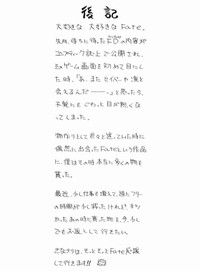 後記
大好きな 大好きなFate。
先日、待ちに待った の内容が
コンプティーク誌上で公開され、
そのゲーム画面を初めて目にし
た時、「あ、またセイバーや凛と
会えるんだ―――。」と思ったら、
不覚にもじわっと目が熱くな
ってしまった。
物作りとして 悶々と迷っていた時に
偶然に出会ったFateという作品
に、僕はその時 本当に多くの物を
貰った。
最近、少し仕事も増えて、描くフリー
の時間が少し減ったけれど、もら
った あの時に貰った物を、今、少し
でもお返しして 行きたい。
さなづらは、もっと、もっとFateを応援
して行きます!!